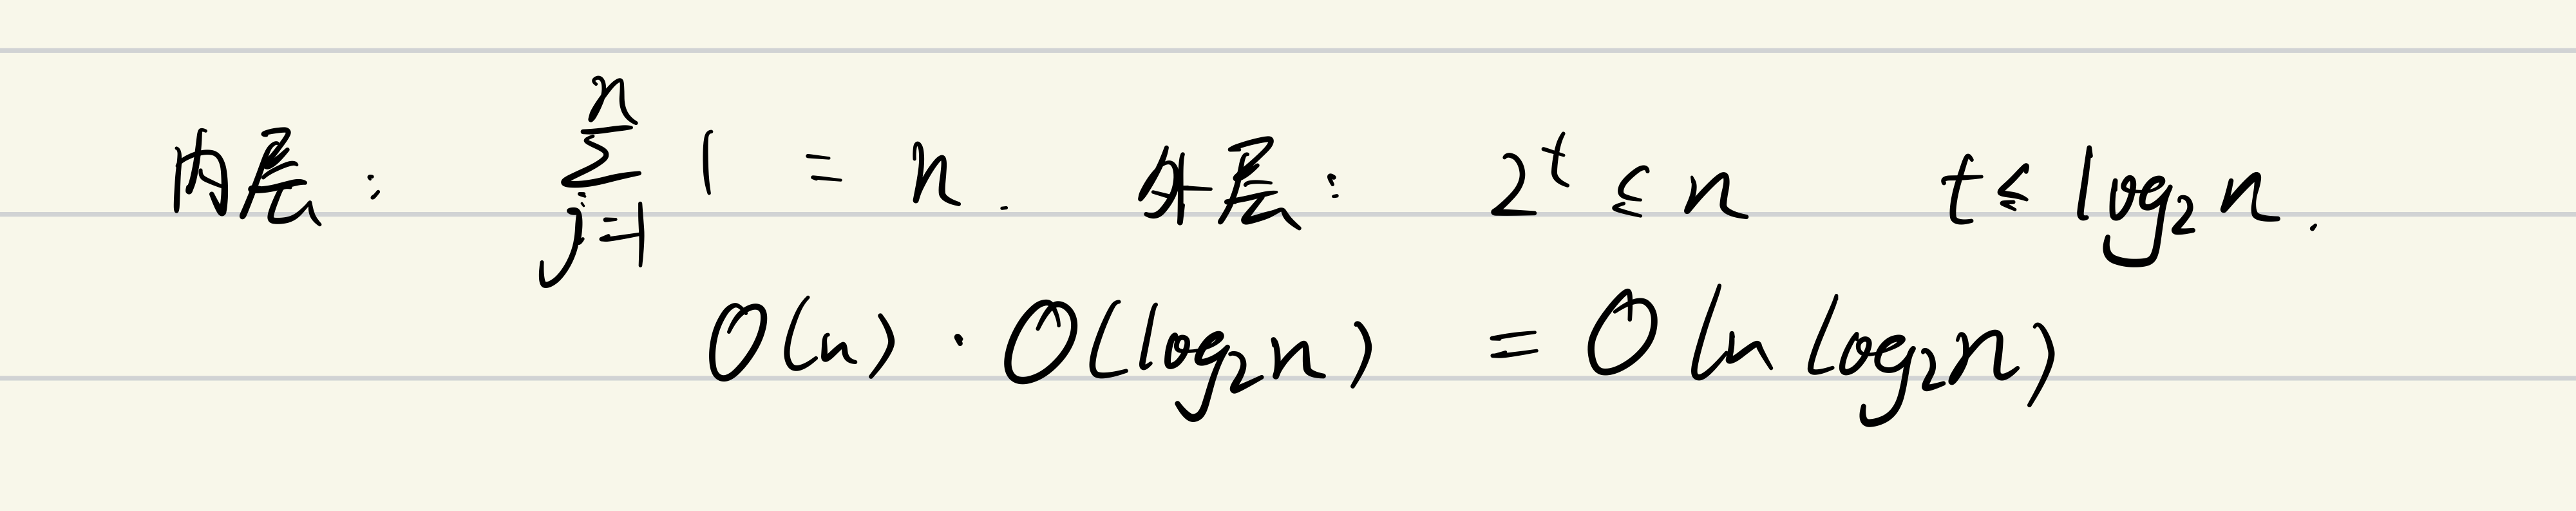 内层: \sum_{j=1}^{n} 1 = n. 外层: 2^t ≤ n t ≤ log₂n.
O(n) · O(log₂n) = O(n log₂n)